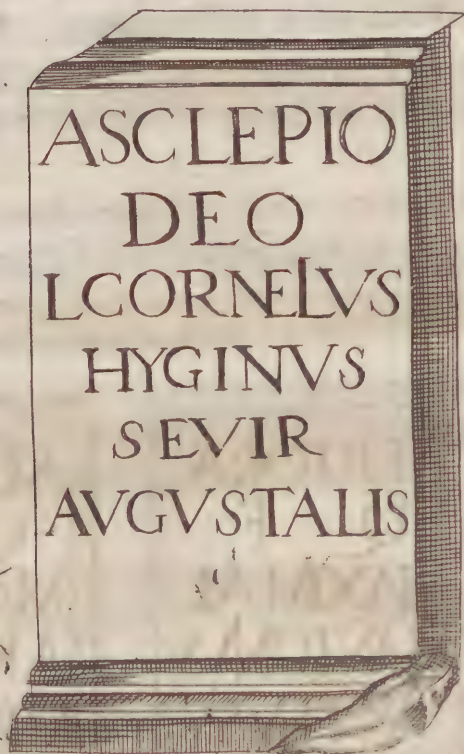 ASCLEPIO
DEO
LCORNELVS
HYGINVS
SEVIR
AVGVSTALIS